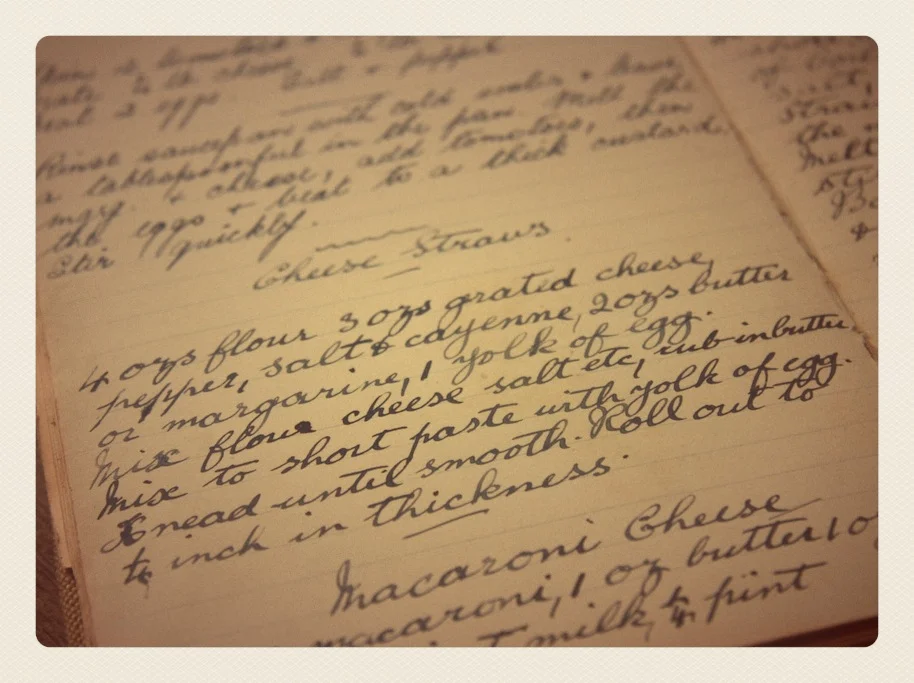 tomatoes
eggs Salt & pepper
Rinse saucepan with cold water & leave
a tablespoonful in the pan Melt the
& cheese, add tomatoes, then
the eggs & beat to a thick custard.
Stir quickly.
Cheese Straws.
4 ozs flour 3 ozs grated cheese,
pepper, salt & cayenne, 2 ozs butter
or margarine, 1 yolk of egg.
Mix flour cheese salt etc, rub in butter,
Mix to short paste with yolk of egg.
Knead until smooth. Roll out to
¼ inch in thickness.
Macaroni Cheese
macaroni, 1 oz butter 1 o
milk, ¼ pint
the
Melt